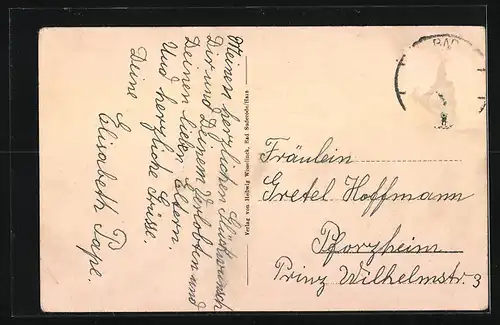 Meinen herzlichen Glückwunsch
Dir und Deinem Verlobten und
Deinen lieben Eltern.
Und herzliche Grüsse.
Deine
Elisabeth Pape.
Verlag von Hedwig Bad Suderode/Harz
BAD
Fräulein
Gretel Hoffmann
Pforzheim
Prinz Wilhelmstr. 3